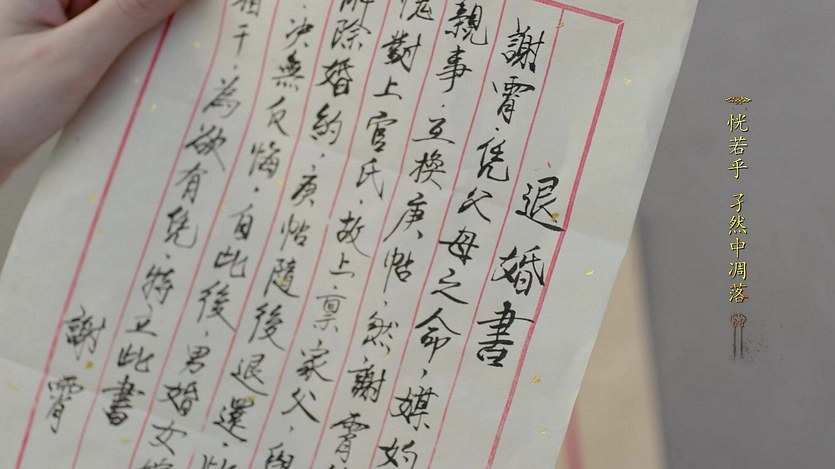 退婚書
謝霄，凭父母之命，媒妁
親事，互換庚帖，然，謝霄
愧對上官氏，故上稟家父，與
解除婚約，庚帖隨後退還，
決無反悔，自此後，男婚女
相干，為欲有凭，特立此書
謝霄
恍若乎 孑然中凋落